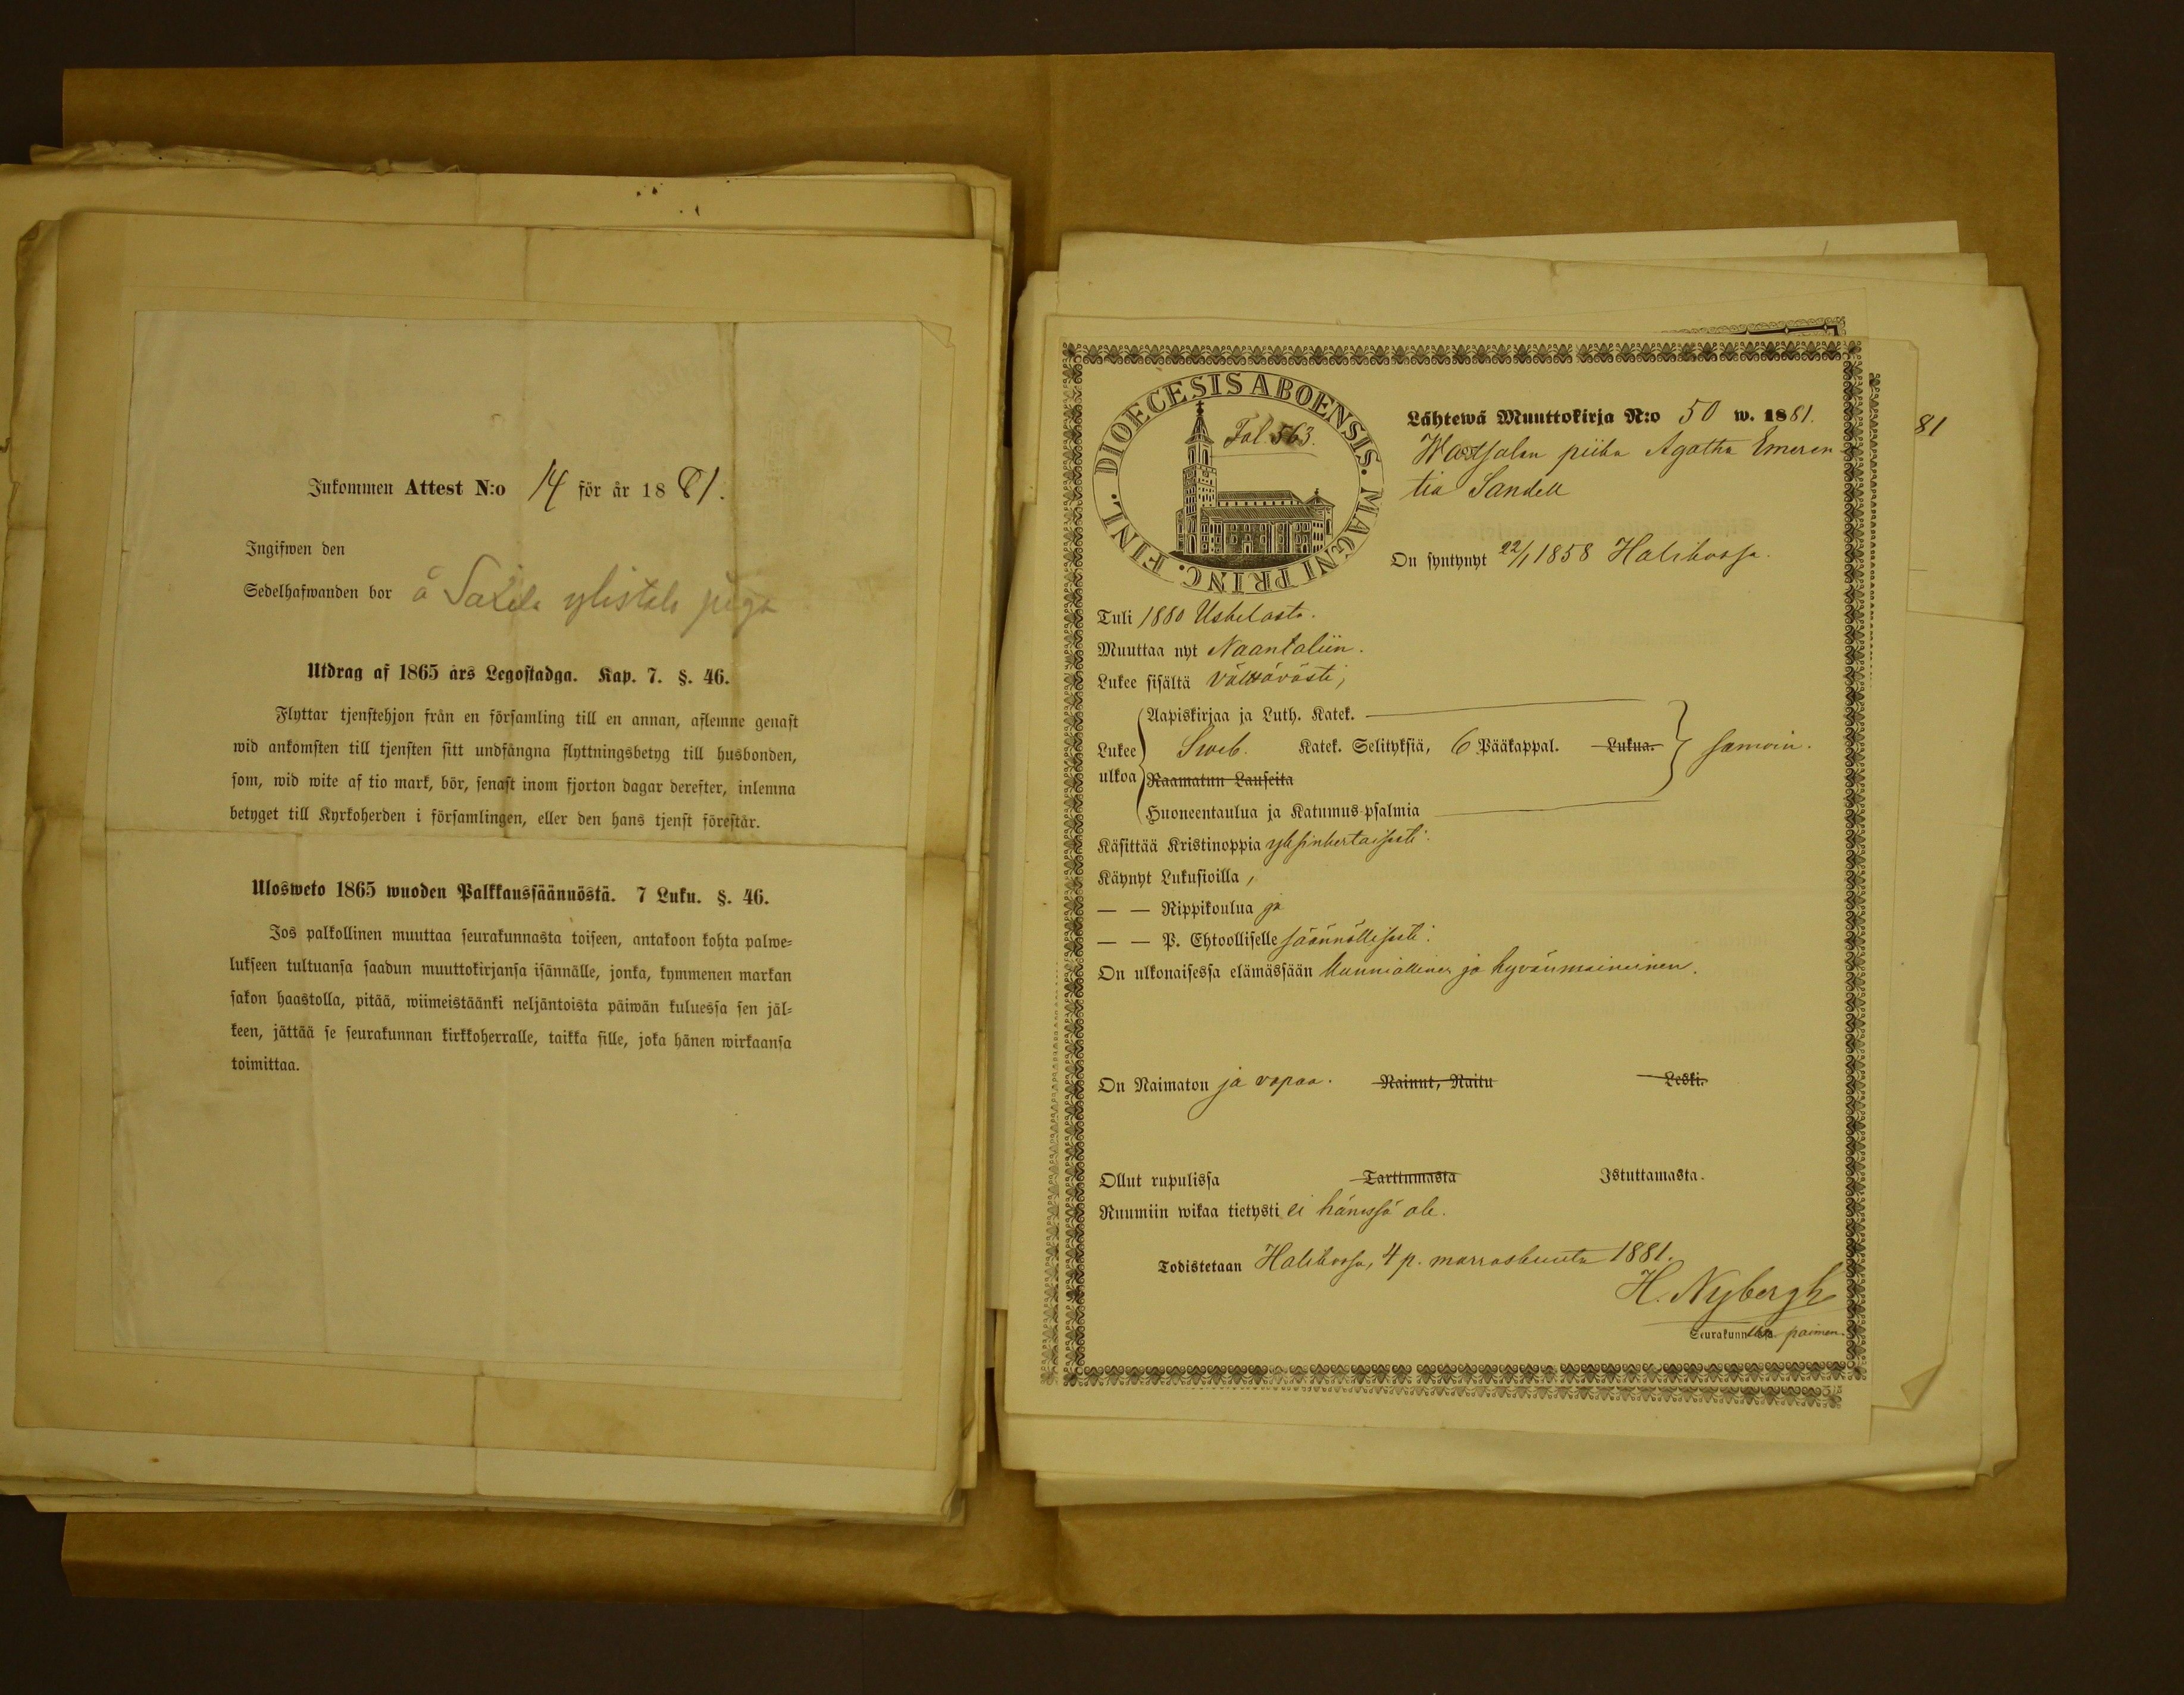 Inkommen Attest N:o 14 för år 1881.
Ingifwen den
Sedelhafwanden bor å Saxila ylistalo piga
Utdrag af 1865 års Legostadga. Kap. 7. §. 46.
Flyttar tjenstehjon från en församling till en annan, aflemne genast
wid ankomsten till tjensten sitt undfångna flyttningsbetyg till husbonden,
som, wid wite af tio mark, bör, senast inom fjorton dagar derefter, inlemna
betyget till Kyrkoherden i församlingen, eller den hans tjenst förestår.
Ulosweto 1865 wuoden Palkkaussäännöstä. 7 Luku. §. 46.
Jos palkollinen muuttaa seurakunnasta toiseen, antakoon kohta palwe=
lukseen tultuansa saadun muuttokirjansa isännälle, jonka, kymmenen markan
sakon haastolla, pitää, wiimeistäänki neljäntoista päiwän kuluessa sen jäl=
keen, jättää se seurakunnan kirkkoherralle, taikka sille, joka hänen wirkaansa
toimittaa.
DIOECESIS ABOENSIS. MAGNI PRINC. FINL.
Fol. 563.
Lähtewä Muuttokirja N:o 50 w. 1881.
piika Agatha Emeren
tia Sandell
On syntynyt 22/1 1858 Halikossa.
Tuli 1880 Uskelasta.
Muuttaa nyt Naantaliin.
Lukee sisältä välttävästi,
Aapiskirjaa ja Luth. Katek.
Lukee ulkoa Sweb. Katek. Selityksiä, 6 Pääkappal. Lukua. samoin.
Raamatun Lauseita
Huoneentaulua ja Katumus-psalmia
Käsittää Kristinoppia yksinkertaisesti.
Käynyt Lukusioilla,
— — Rippikoulua ja
— — P. Ehtoolliselle säännöllisesti.
On ulkonaisessa elämässään kunniallinen ja hyvänmaineinen.
On Naimaton ja vapaa. Nainut, Naitu Leski.
Ollut rupulissa Tarttumasta Istuttamasta.
Ruumiin wikaa tietysti ei hänessä ole.
Todistetaan Halikossa, 4 p. marraskuuta 1881.
H. Nybergh
Seurakunnan paimen.
81